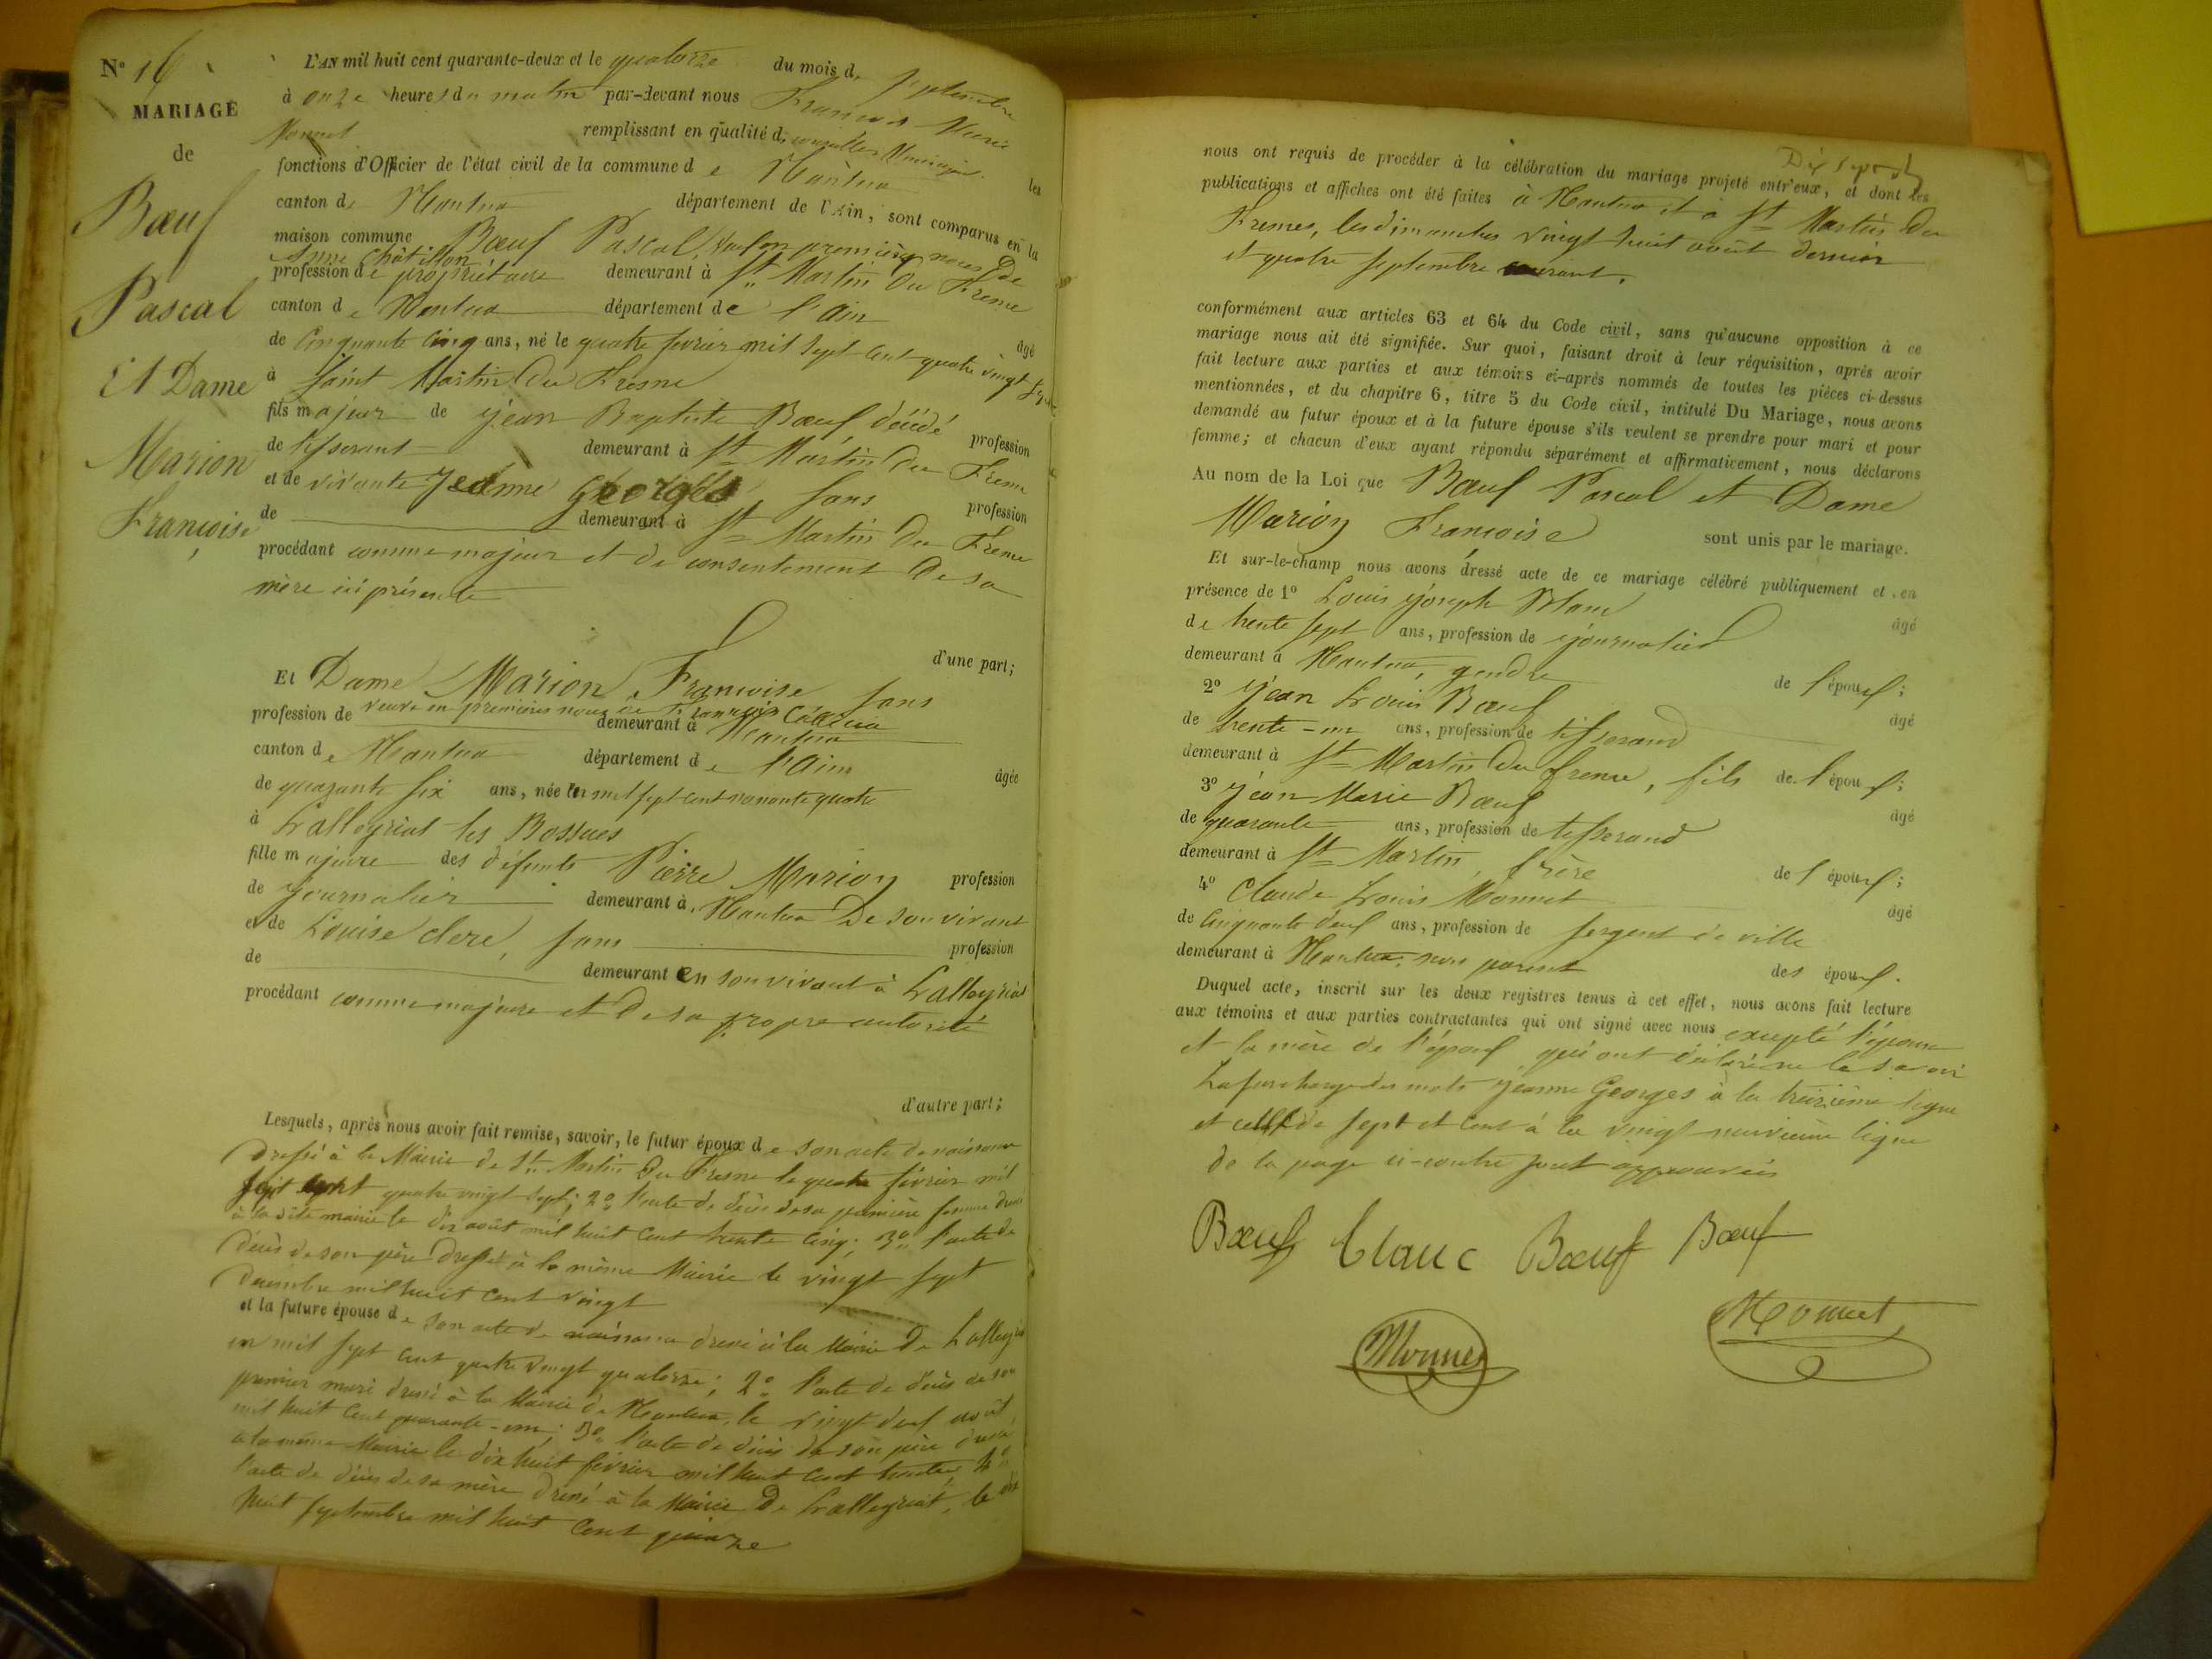 Nº 16
MARIAGE
de
Bœuf
Pascal
Et Dame
Marion
Françoise
L'AN mil huit cent quarante-deux et le quatorze du mois de septembre
à onze heures du matin par-devant nous François Marie
Monnet remplissant en qualité de conseiller Municipal les
fonctions d'Officier de l'état civil de la commune de Nantua
canton de Nantua département de l'Ain, sont comparus en la
maison commune Bœuf Pascal, veuf en premières noces De
Anne Châtillon
profession de propriétaire demeurant à St Martin Du Fresne
canton de Nantua département de l'Ain âgé
de Cinquante Cinq ans, né le quatre fevrier mil sept cent quatre vingt sept
à Saint Martin Du Fresne
fils majeur de jean Baptiste Bœuf décédé profession
de tisserant demeurant à St Martin Du Fresne
et de vivante Jeanne Georges, sans profession
de demeurant à St Martin Du Fresne
procédant comme majeur et du consentement De sa
mère ici présente
d'une part;
Et Dame Marion Françoise sans
veuve en premières noces de
profession de demeurant à Nantua
canton de Nantua département de l'Ain âgée
de quarante six ans, née en mil sept cent nonante quatre
à Lalleyriat les Bossues
fille majeure des défunts Pierre Marion profession
de journalier demeurant à Nantua De son vivant
et de Louise clerc, sans profession
de demeurant en son vivant à Lalleyriat
procédant comme majeure et De sa propre autorité
d'autre part;
Lesquels, après nous avoir fait remise, savoir, le futur époux de son acte de naissance
Dressé à la Mairie de St Martin Du Fresne le quatre février mil
sept cent quatre vingt sept; 2º l'acte de décès de sa première femme dressé
à la dite mairie le dix août mil huit cent trente cinq; 3º l'acte de
décès de son père Dressé à la même Mairie le vingt sept
Decembre mil huit cent vingt
et la future épouse de son acte de naissance dressé à la Mairie De Lalleyriat
en mil sept cent quatre vingt quatorze; 2º l'acte de décès de son
premier mari dressé à la Mairie de Nantua, le vingt deux août
mil huit cent quarante-un; 3º l'acte de décès de son père dressé
à la même Mairie le dix huit février mil huit cent trente; 4º
l'acte de décès de sa mère dressé à la Mairie De Lalleyriat, le dix
huit septembre mil huit cent quinze
nous ont requis de procéder à la célébration du mariage projeté entr'eux, et dont les
publications et affiches ont été faites à Nantua et à St Martin Du
Fresnes, les dimanches vingt huit août dernier
et quatre septembre courant.
conformément aux articles 63 et 64 du Code civil, sans qu'aucune opposition à ce
mariage nous ait été signifiée. Sur quoi, faisant droit à leur réquisition, après avoir
fait lecture aux parties et aux témoins ci-après nommés de toutes les pièces ci-dessus
mentionnées, et du chapitre 6, titre 5 du Code civil, intitulé Du Mariage, nous avons
demandé au futur époux et à la future épouse s'ils veulent se prendre pour mari et pour
femme; et chacun d'eux ayant répondu séparément et affirmativement, nous déclarons
Au nom de la Loi que Bœuf Pascal et Dame
Marion Françoise sont unis par le mariage.
Et sur-le-champ nous avons dressé acte de ce mariage célébré publiquement et en
présence de 1º Louis joseph Blanc âgé
de trente sept ans, profession de journalier
demeurant à Nantua, gendre de l'époux;
2º jean Louis Bœuf âgé
de trente-un ans, profession de tisserand
demeurant à St Martin Du fresne, fils de l'époux;
3º jean Marie Bœuf âgé
de quarante ans, profession de tisserand
demeurant à St Martin, frère de l'époux;
4º Claude Louis Monnet âgé
de Cinquante deux ans, profession de sergent de ville
demeurant à Nantua, non parent des époux.
Duquel acte, inscrit sur les deux registres tenus à cet effet, nous avons fait lecture
aux témoins et aux parties contractantes qui ont signé avec nous excepté l'épouse
et la mère de l'époux qui ont déclaré ne le savoir
La surcharge des mots jeanne Georges à la treizième ligne
et celle de sept et cent à la vingt neuvième ligne
de la page ci-contre sont approuvées
Bœuf Blanc Bœuf Bœuf
Monnet Monnet